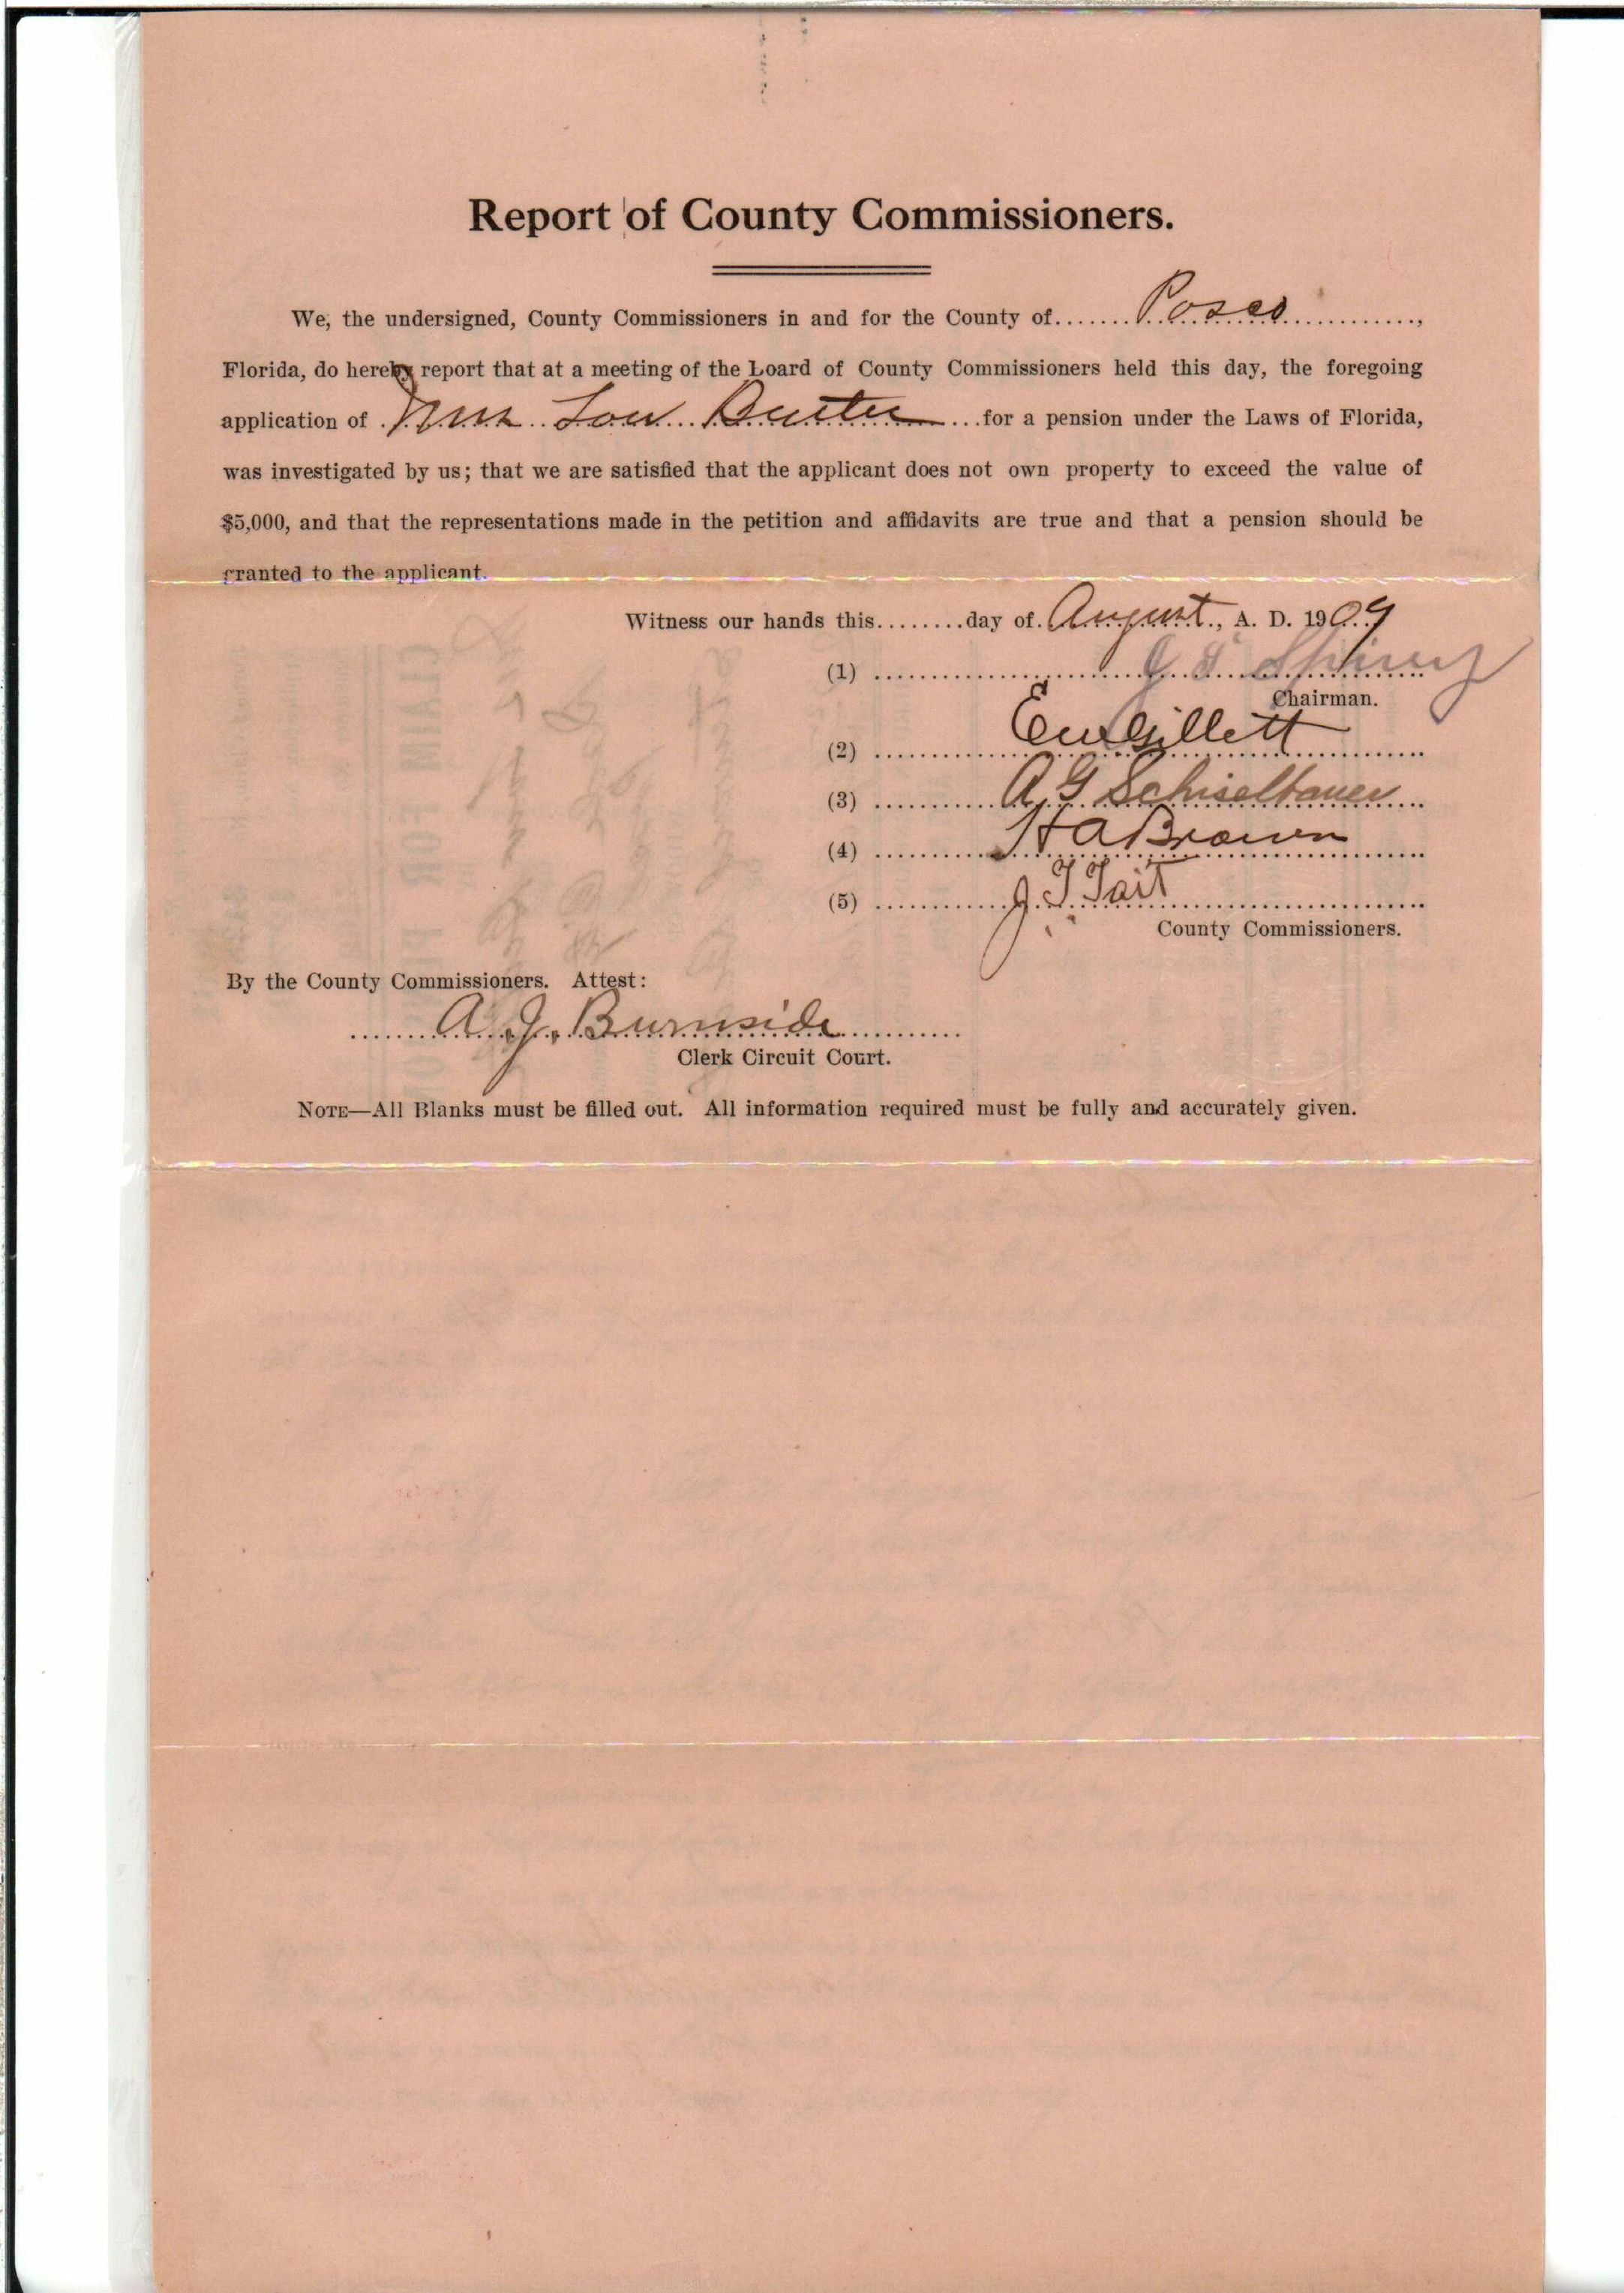 Report of County Commissioners.
We, the undersigned, County Commissioners in and for the County of.......Pasco..............,
Florida, do hereby report that at a meeting of the Loard of County Commissioners held this day, the foregoing
application of Mrs Lou ... for a pension under the Laws of Florida,
was investigated by us; that we are satisfied that the applicant does not own property to exceed the value of
$5,000, and that the representations made in the petition and affidavits are true and that a pension should be
granted to the applicant.
Witness our hands this........day of. August., A. D. 1909
(1) J. T. Spivey
Chairman.
(2) EW Gillett
(3) A G Schiselbauer
(4) H A Brown
(5) J. T Tait
County Commissioners.
By the County Commissioners. Attest:
A. J. Burnside
Clerk Circuit Court.
NOTE—All Blanks must be filled out. All information required must be fully and accurately given.